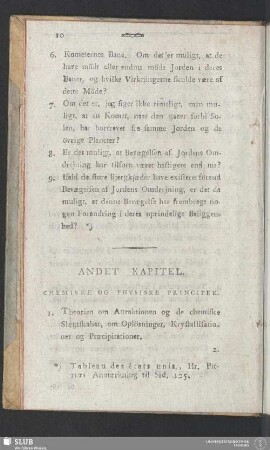 10
6. Kometernes Bane. Om det er muligt, at de
have mödt eller endnu möde Jorden i deres
Baner, og hvilke Virkningerne skulde være af
dette Möde?
7. Om det er, jeg siger ikke rimeligt, men mu-
ligt, at en Komet, ved den gaaer forbi So-
len, har bortrevet fra samme Jorden og de
övrige Planeter?
8. Er det muligt, at Bevægelsen af Jordens Om-
drejning har tilforn været hastigere end nu?
9. Ifald de store Bjergkjæder have existeret förend
Bevægelsen af Jordens Omdrejning, er det da
muligt, at denne Bevægelse har frembragt no-
gen Forandring i deres oprindelige Beliggen-
hed? *)
ANDET KAPITEL.
CHEMISKE OG PHYSISKE PRINCIPER.
1. Theorien om Attraktionen og de chemiske
Slægtskaber, om Oplösninger, Krystallisatio-
ner og Præcipitationer.
2.
*) Tableau des états unis, Hr.
Anmærkning til Sid. 125.
SLUB